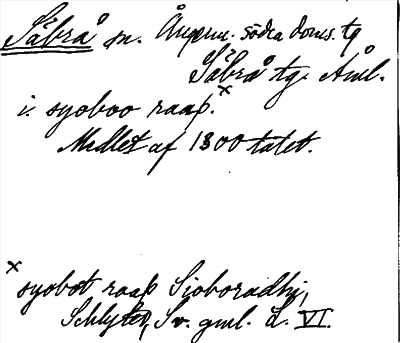 Säbrå sn. Ångerm. södra doms. tg
Säbrå tg. Åml.
i syoboo raap.x
Medlet af 1300 talet.
x
syobot raap Sioboradhi,
Schlyter, Sv. gml. L. VI.